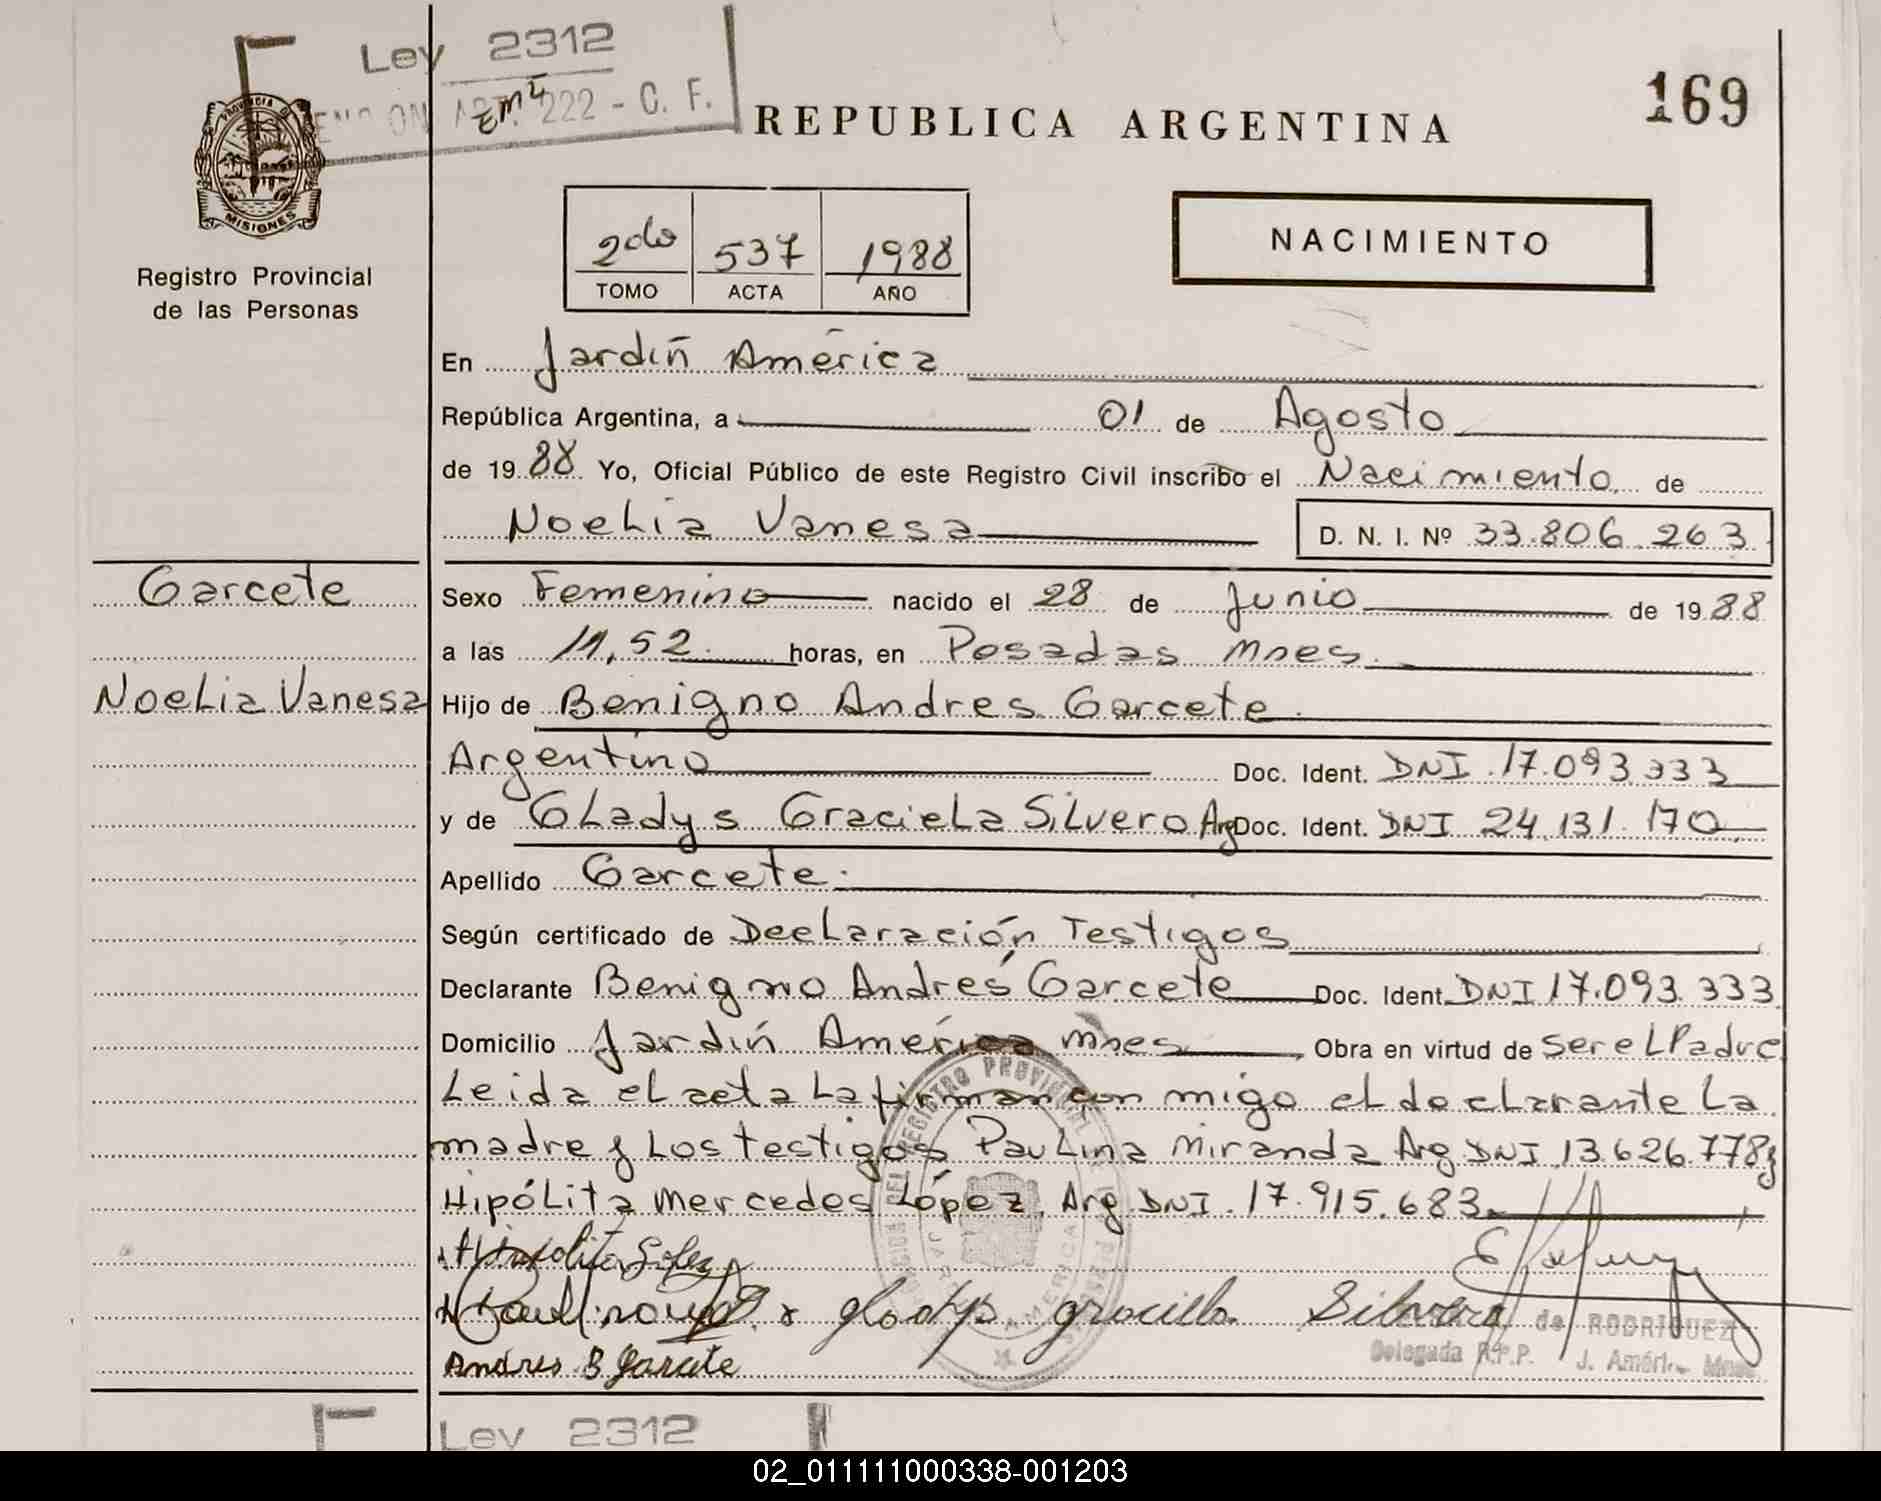 Ley 2312
ART. 222 - C. F.
REPUBLICA ARGENTINA
169
PROVINCIA DE
MISIONES
Registro Provincial
de las Personas
2do 537 1988
TOMO ACTA AÑO
NACIMIENTO
En Jardín América
República Argentina, a 01 de Agosto
de 1988 Yo, Oficial Público de este Registro Civil inscribo el Nacimiento de
Noelia Vanesa D. N. I. Nº 33.806.263
Garcete
Noelia Vanesa
Sexo Femenino nacido el 28 de Junio de 1988
a las 11,52 horas, en Posadas Mnes.
Hijo de Benigno Andres Garcete
Argentino Doc. Ident. DNI 17.093.333
y de Gladys Graciela Silvero Arg Doc. Ident. DNI 24.131.170
Apellido Garcete
Según certificado de Declaración Testigos
Declarante Benigno Andrés Garcete Doc. Ident. DNI 17.093.333
Domicilio Jardín América Mnes Obra en virtud de Ser el Padre
Leida el acta la firman con migo el declarante la
madre y los testigos Paulina Miranda Arg DNI 13.626.778 y
Hipólita Mercedes López Arg DNI 17.915.683
gladys gracilla Silvero
Andres B Garcete
de RODRIGUEZ
Delegada R.P.P. J. Améri
Ley 2312
02_011111000338-001203